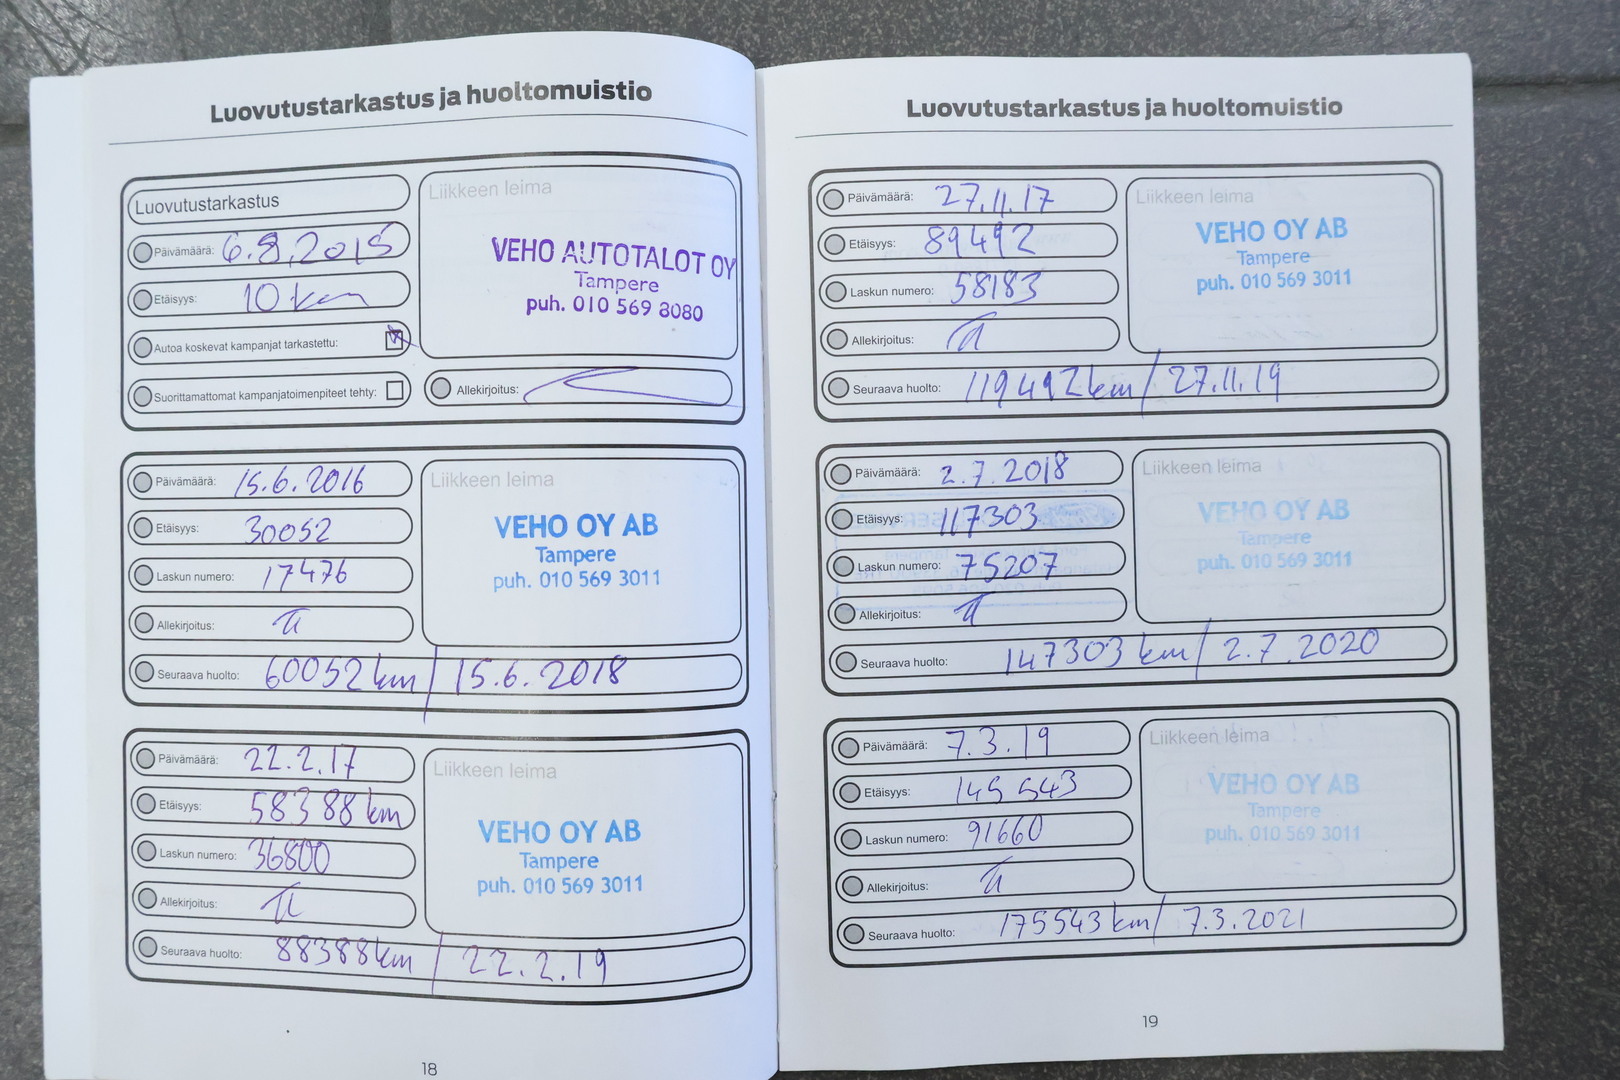 Luovutustarkastus ja huoltomuistio
Luovutustarkastus
Päivämäärä: 6.8.2015
Etäisyys: 10 km
Autoa koskevat kampanjat tarkastettu:
Suorittamattomat kampanjatoimenpiteet tehty:
Liikkeen leima
VEHO AUTOTALOT OY
Tampere
puh. 010 569 8080
Allekirjoitus:
Päivämäärä: 15.6.2016
Etäisyys: 30052
Laskun numero: 17476
Allekirjoitus:
Liikkeen leima
VEHO OY AB
Tampere
puh. 010 569 3011
Seuraava huolto: 60052 km / 15.6.2018
Päivämäärä: 22.2.17
Etäisyys: 58388 km
Laskun numero: 36800
Allekirjoitus:
Liikkeen leima
VEHO OY AB
Tampere
puh. 010 569 3011
Seuraava huolto: 88388 km / 22.2.19
18
Luovutustarkastus ja huoltomuistio
Päivämäärä: 27.11.17
Etäisyys: 89492
Laskun numero: 58183
Allekirjoitus:
Liikkeen leima
VEHO OY AB
Tampere
puh. 010 569 3011
Seuraava huolto: 119492 km / 27.11.19
Päivämäärä: 2.7.2018
Etäisyys: 117303
Laskun numero: 75207
Allekirjoitus:
Liikkeen leima
VEHO OY AB
Tampere
puh. 010 569 3011
Seuraava huolto: 147303 km / 2.7.2020
Päivämäärä: 7.3.19
Etäisyys: 145 543
Laskun numero: 91660
Allekirjoitus:
Liikkeen leima
VEHO OY AB
Tampere
puh. 010 569 3011
Seuraava huolto: 175543 km / 7.3.2021
19